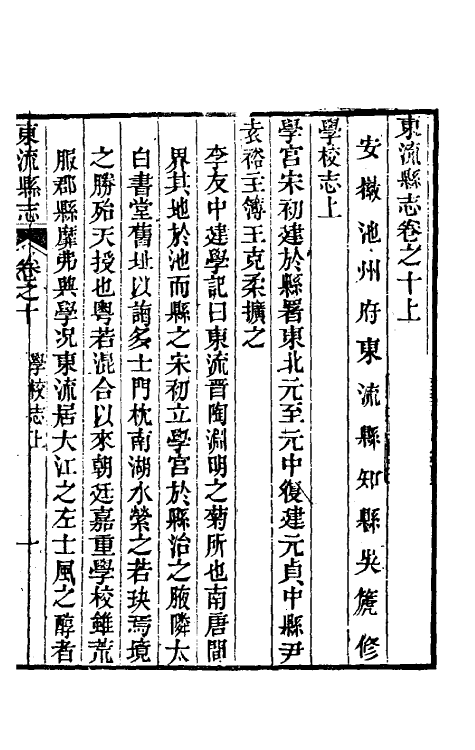 東流縣志卷之十上
安徽池州府東流縣知縣吳篪修
學校志上
學宮宋初建於縣署東北元至元中復建元貞中縣尹
袁裕主簿王克柔擴之
李友中建學記曰東流晋陶淵明之菊所也南唐間
界其地於池而縣之宋初立學宮於縣治之腋隣太
白書堂舊址以誨多士門枕南湖水縈之若玦焉境
之勝殆天授也粵若混合以來朝廷嘉重學校雖荒
服郡縣靡弗興學况東流居大江之左士風之醇者
東流縣志
卷之十
學校志上
一